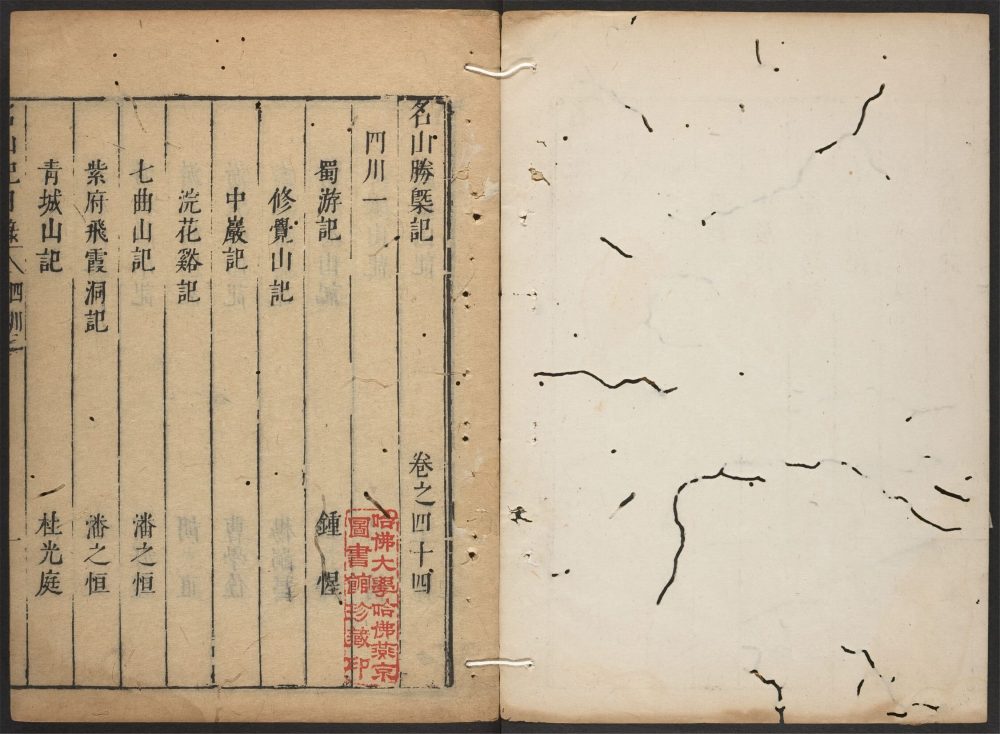 名山勝槩記 卷之四十四
四川一
蜀游記 鍾惺
修覺山記
中巖記
浣花谿記
七曲山記 潘之恒
紫府飛霞洞記 潘之恒
青城山記 杜光庭
名山記目錄 四川 一
哈佛大學哈佛燕京
圖書館珍藏印